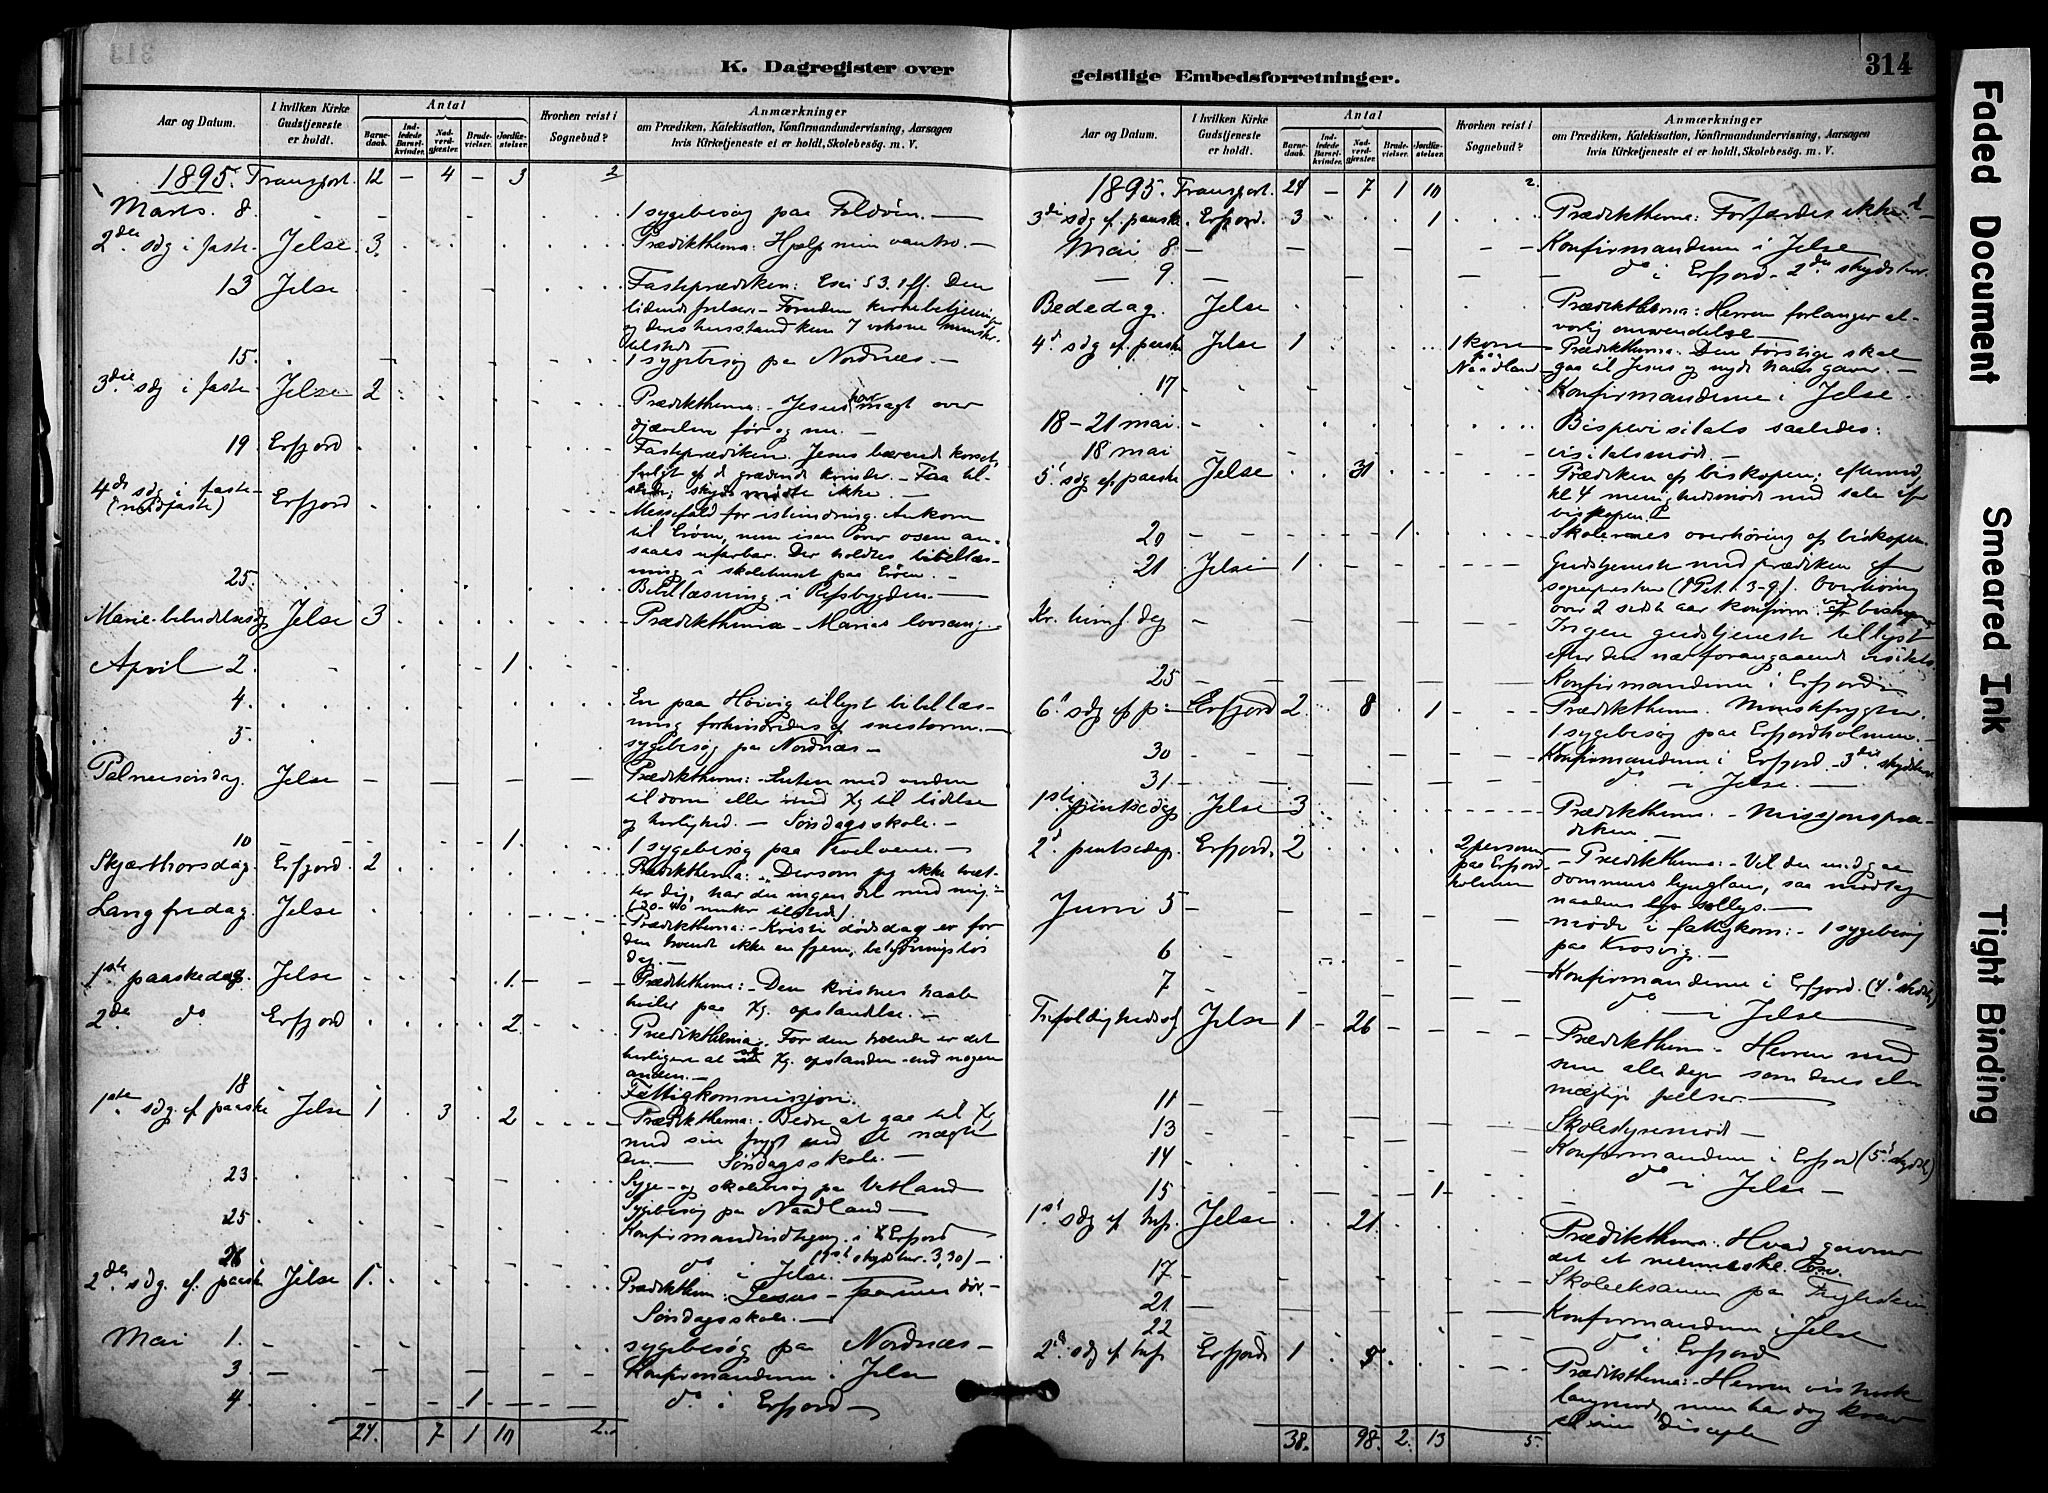 K. Dagregister over
Aar og Datum.
I hvilken Kirke Gudstjeneste er holdt.
Antal
Barnedaab.
Indledede Barselkvinder.
Nadverdgjester.
Brudevielser.
Jordfæstelser.
Hvorhen reist i Sognebud?
Anmærkninger
om Prædiken, Katekisation, Konfirmandundervisning, Aarsagen
hvis Kirketjeneste ei er holdt, Skolebesög. m. V.
1895. Transport. 12 – 4 – 3 2
Marts. 8. 1 sygebesøg paa Foldøen. –
2den sdg i faste Jelse 3. Prædikthema: Hjælp min vantro. –
13 Jelse Fasteprædiken: Esai 53. 1 ff. Den
lidende frelser. – Foruden kirkebetjening
og deres husstand kun 7 voksne mennesker
tilstede
15. 1 sygebesøg paa Nordnæs. –
3die sdg i faste Jelse 2 Prædikthema: – Jesus har magt over
djævelen før og nu. –
19 Erfjord Fasteprædiken. Jesus bærende korset
fulgt af d grædende kvinder. – Faa til-
stede; skyds mødte ikke. –
4de sdg i faste
(midfaste) Erfjord Messefald for istimdring. Ankom
til Erøen, men isen over osen an-
saaes ufarbar. Der holdtes bibellæs-
ning i skolehuset paa Erøen. –
25. Bibellæsning i Refsbygden. –
Marie bebudelsesdg Jelse 3 Prædikthema – Marias lovsang –
April 2. 1
4. En paa Høivig tillyst bibellæs-
ning forhindredes af snestorm. –
5. sygebesøg paa Nordnæs –
Palmesøndag. Jelse – Prædikthema: – Enten med verden
til dom eller med Xg til lidelse
og herlighed. – Søndagsskole. –
10 1. 1 sygebesøg paa Tveitveen. –
Skjærthorsdag. Erfjord. 2 Prædikthema: „Dersom jeg ikke tvæt-
ter dig, har du ingen del med mig. –
(30–40 mskr tilstede).
Langfredag. Jelse Prædikthema: – Kristi dødsdag er for
den troende ikke en fjern, betydningsløs
dag. –
1ste paaskedag. Jelse 1. Prædikthema: – Den kristnes haab
hviler paa Xg. opstandelse. –
2den do Erfjord 2. Prædikthema. For den troende er det
herligere at Xg. opstanden end nogen
anden. –
18 Fattigkommissjon.
1ste sdg. ef. paaske Jelse 1 3 2 Prædikthema: – Bedre at gaa til Xg
med sin frygt end at nægte
den. – Søndagsskole. –
23 Syge- og skolebesøg paa Vatland
25. Sygebesøg paa Naadland –
Konfirmandindtegning. i Erfjord
26 (1ste skydstur. 3,30) –
do i Jelse.
2den sdg. ef. paaske Jelse 1. Prædikthem: Jesus – faarenes dør. –
Søndagsskole. –
Mai 1. sygebesøg paa Nordnæs –
3 – Konfirmanderne i Jelse
4 1 do i Erfjord –
24. 7 1 10 2.
geistlige Embedsforretninger.
314
Aar og Datum.
I hvilken Kirke Gudstjeneste er holdt.
Antal
Barnedaab.
Indledede Barselkvinder.
Nadverdgjester.
Brudevielser.
Jordfæstelser.
Hvorhen reist i Sognebud?
Anmærkninger
om Prædiken, Katekisation, Konfirmandundervisning, Aarsagen
hvis Kirketjeneste ei er holdt, Skolebesög. m. V.
1895. Transport. 24 – 7 1 10 2.
3die sdg ef. paaske. Erfjord. 3 1 Prædikthema: Forfærdes ikke! –
Mai 8. – Konfirmanderne i Jelse
– 9. – do i Erfjord – 2den skydstur.
Bededag. Jelse Prædikthema: Herren forlanger al-
vorlig omvendelse –
4d sdg ef. paaske Jelse 1 1 kone paa Naadland – Prædikthema. Den tørstige skal
gaa til Jesus og nyde hans gaver. –
17 Konfirmanderne i Jelse.
18–21 mai. Bispevisitats saaledes:
18 mai visitatsmøde. –
5t sdg ef. paaske Jelse 31 Prædiken af biskopen; eftermid
kl 4 menighedsmøde med tale af
biskopen.
20 1 Skolernes overhøring af biskopen.
21 Jelse 1 Gudstjeneste med prædiken af
sognepresten (1 Pet. 1. 3–9). Overhøring
over 2 sidste aars konfirm. ved biskopen
Kr. himf. dag Ingen gudstjeneste tillyst
efter den nær forangaaende visitats.
25 Konfirmanderne i Erfjord
6t sdg ef p. – Erfjord 2. 8 1 Prædikthema. Menskefrygten.
1 sygebesøg paa Erfjordholmen. –
30 – Konfirmanderne i Erfjord – 3die skydstur
31 – do – i Jelse. –
1ste pintsedag Jelse 3 Prædikthema. – Missjonspræ-
diken –
2d. pintsedag. Erfjord. 2 2 personer paa Erfjord-holmen – Prædikthema: – Vil du undgaa
dommens lynglans, saa modtag
naadens sollys. –
Juni 5 møde i fattigkom: – 1 sygebesøg
paa Krosvig. –
6 Konfirmanderne i Erfjord. (4d skydst)
7 do – i Jelse –
Trefoldighedssdg Jelse 1 – 26 Prædikthem – Herren med
sine alle dage som deres al-
mægtige frelser. –
11 Skolestyremøde –
13 Konfirmanderne i Erfjord (5t skydst)
14 do i Jelse –
15 1
1st. sdg ef tref. Jelse 21 Prædikthema. Hvad gavner
det et menneske osv.
17 Skoleeksamen paa
21 – Konfirmanderne i Jelse
22 – do i Erfjord
2d sdg ef tref Erfjord 1 5 Prædikthema: – Herren vis nok
langmod, men har dog krav
til sine disciple
38. 98. 2. 13 5.
Faded Document
Smeared Ink
Tight Binding